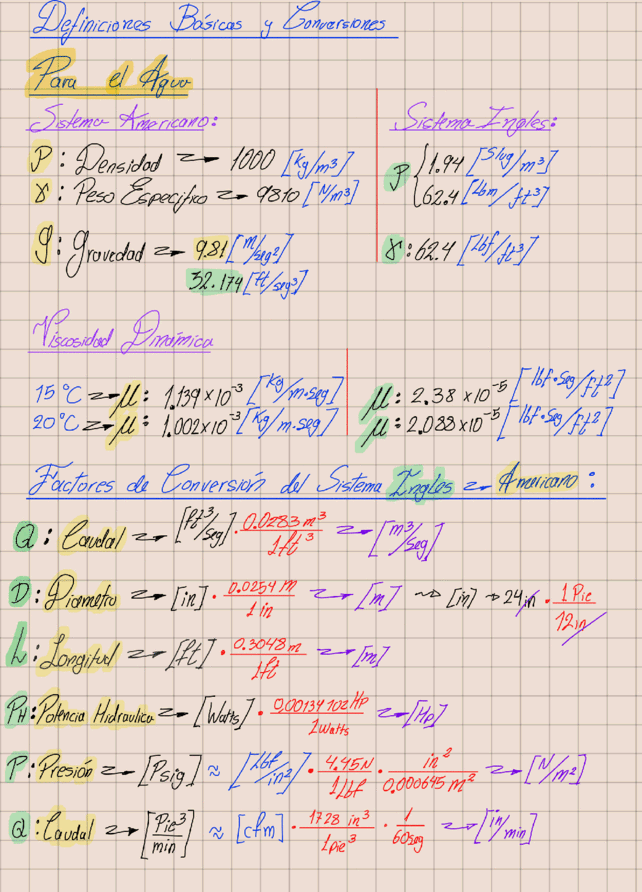 Definiciones Básicas y Conversiones
Para el Agua
Sistema Americano:
ρ: Densidad → 1000 [Kg/m³]
γ: Peso Especifico → 9810 [N/m³]
g: gravedad → 9.81 [m/seg²]
32.174 [ft/seg³]
Sistema Ingles:
ρ { 1.94 [Slug/m³]
62.4 [Lbm/ft³]
γ: 62.4 [Lbf/ft³]
Viscosidad Dinámica
15°C → μ: 1.139x10⁻³ [Kg/m·seg]
20°C → μ: 1.002x10⁻³ [Kg/m·seg]
μ: 2.38x10⁻⁵ [lbf·Seg/ft²]
μ: 2.088x10⁻⁵ [lbf·Seg/ft²]
Factores de Conversión del Sistema Ingles → Americano:
Q: Caudal → [ft³/seg] · 0.0283 m³/1ft³ → [m³/seg]
D: Diametro → [in] · 0.0254 m/1 in → [m] ⇝ [in] → 24in · 1 Pie/12in
L: Longitud → [ft] · 0.3048m/1ft → [m]
PH: Potencia Hidraulica → [Watts] · 0.00134102 Hp/1watts → [Hp]
P: Presión → [Psig] ≈ [Lbf/in²] · 4.45N/1Lbf · in²/0.000645 m² → [N/m²]
Q: Caudal → [Pie³/min] ≈ [cfm] · 1728 in³/1pie³ · 1/60seg → [in/min]